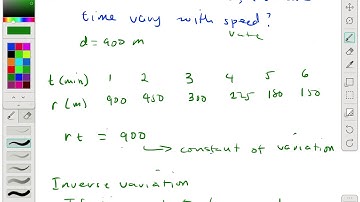 time vary with speed?
rate
d = 900 m
t (min) 1 2 3 4 5 6
r (m) 900 450 300 225 180 150
r t = 900
constant of variation
Inverse variation